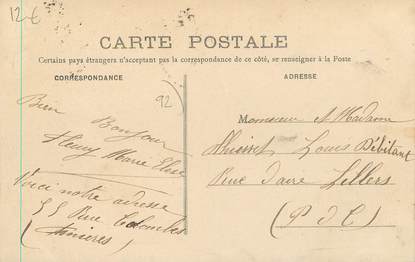 12 €
CARTE POSTALE
Certains pays étrangers n'acceptant pas la correspondance de ce côté, se renseigner à la Poste
CORRESPONDANCE
ADRESSE
92
Bien Bonjour
Fleury Marie Elise
Voici notre adresse
55 Rue Colombes
(Asnières)
Monsieur et Madame
Louis Débitant
Rue d'aire Lillers
(P d C)